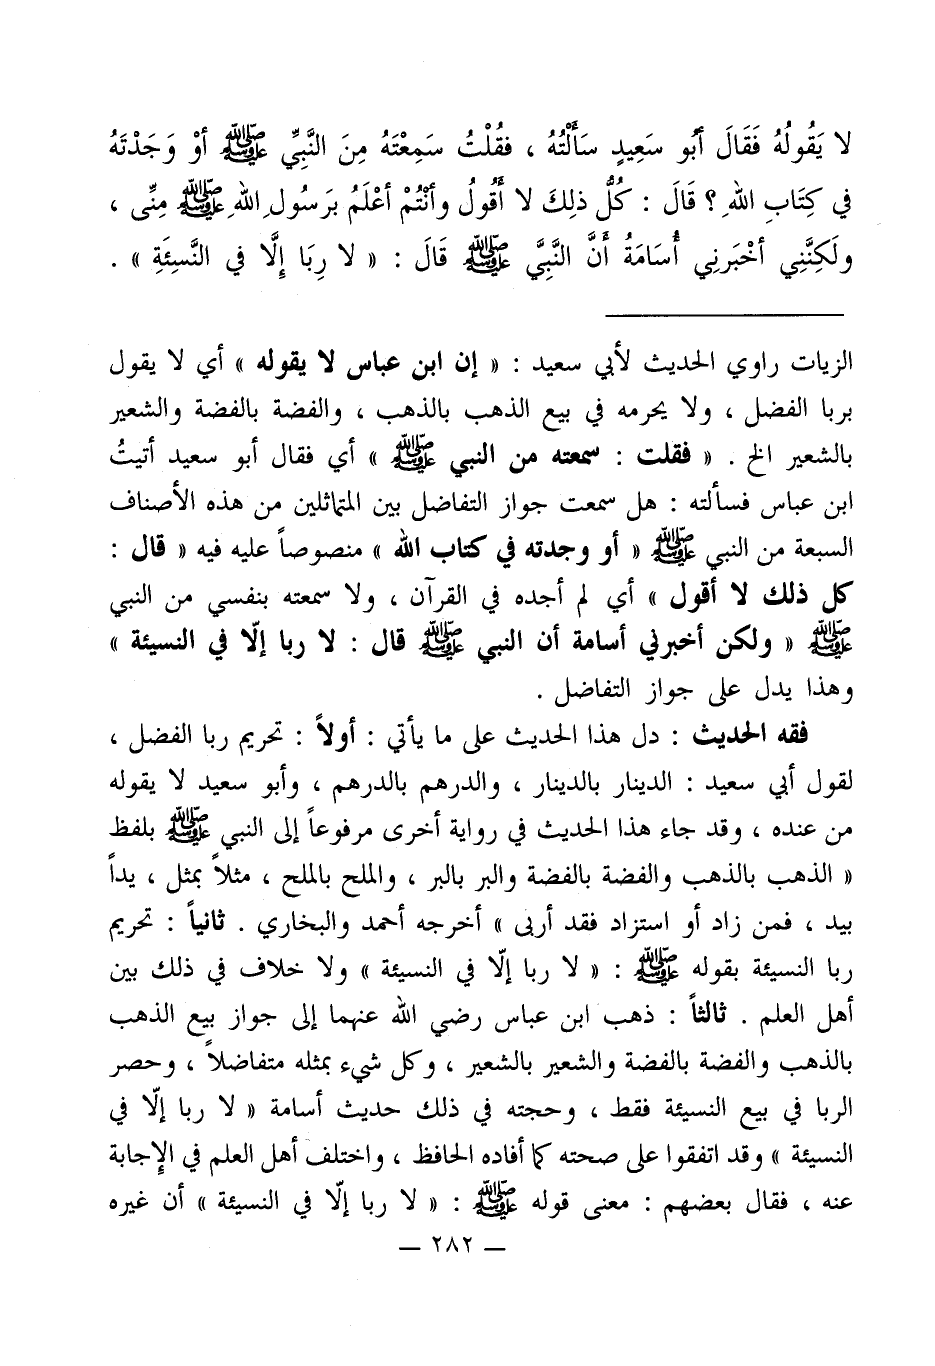 لا يَقُولُهُ فَقَالَ أَبُو سَعِيدٍ سَأَلْتُهُ ، فقُلْتُ سَمِعْتَهُ مِنَ النَّبِيِّ ﷺ أوْ وَجَدْتَهُ
في كِتَابِ اللهِ ؟ قَالَ : كُلُّ ذلِكَ لا أَقُولُ وأنْتُمْ أعْلَمُ بَرَسُولِ اللهِ ﷺ مِنِّى ،
ولَكِنَّنِي أخْبَرنِي أُسَامَةُ أَنَّ النَّبِيَّ ﷺ قَالَ : « لا رِبَا إلَّا في النَّسِئَةِ » .
الزيات راوي الحديث لأبي سعيد : « إن ابن عباس لا يقوله » أي لا يقول
بربا الفضل ، ولا يحرمه في بيع الذهب بالذهب ، والفضة بالفضة والشعير
بالشعير الخ . « فقلت : سمعته من النبي ﷺ » أي فقال أبو سعيد أتيتُ
ابن عباس فسألته : هل سمعت جواز التفاضل بين المتماثلين من هذه الأصناف
السبعة من النبي ﷺ « أو وجدته في كتاب الله » منصوصاً عليه فيه « قال :
كل ذلك لا أقول » أي لم أجده في القرآن ، ولا سمعته بنفسي من النبي
ﷺ « ولكن أخبرني أسامة أن النبي ﷺ قال : لا ربا إلّا في النسيئة »
وهذا يدل على جواز التفاضل .
فقه الحديث : دل هذا الحديث على ما يأتي : أولاً : تحريم ربا الفضل ،
لقول أبي سعيد : الدينار بالدينار ، والدرهم بالدرهم ، وأبو سعيد لا يقوله
من عنده ، وقد جاء هذا الحديث في رواية أخرى مرفوعاً إلى النبي ﷺ بلفظ
« الذهب بالذهب والفضة بالفضة والبر بالبر ، والملح بالملح ، مثلاً بمثل ، يداً
بيد ، فمن زاد أو استزاد فقد أربى » أخرجه أحمد والبخاري . ثانياً : تحريم
ربا النسيئة بقوله ﷺ : « لا ربا إلّا في النسيئة » ولا خلاف في ذلك بين
أهل العلم . ثالثاً : ذهب ابن عباس رضي الله عنهما إلى جواز بيع الذهب
بالذهب والفضة بالفضة والشعير بالشعير ، وكل شيء بمثله متفاضلاً ، وحصر
الربا في بيع النسيئة فقط ، وحجته في ذلك حديث أسامة « لا ربا إلّا في
النسيئة » وقد اتفقوا على صحته كما أفاده الحافظ ، واختلف أهل العلم في الإجابة
عنه ، فقال بعضهم : معنى قوله ﷺ : « لا ربا إلّا في النسيئة » أن غيره
— ٢٨٢ —